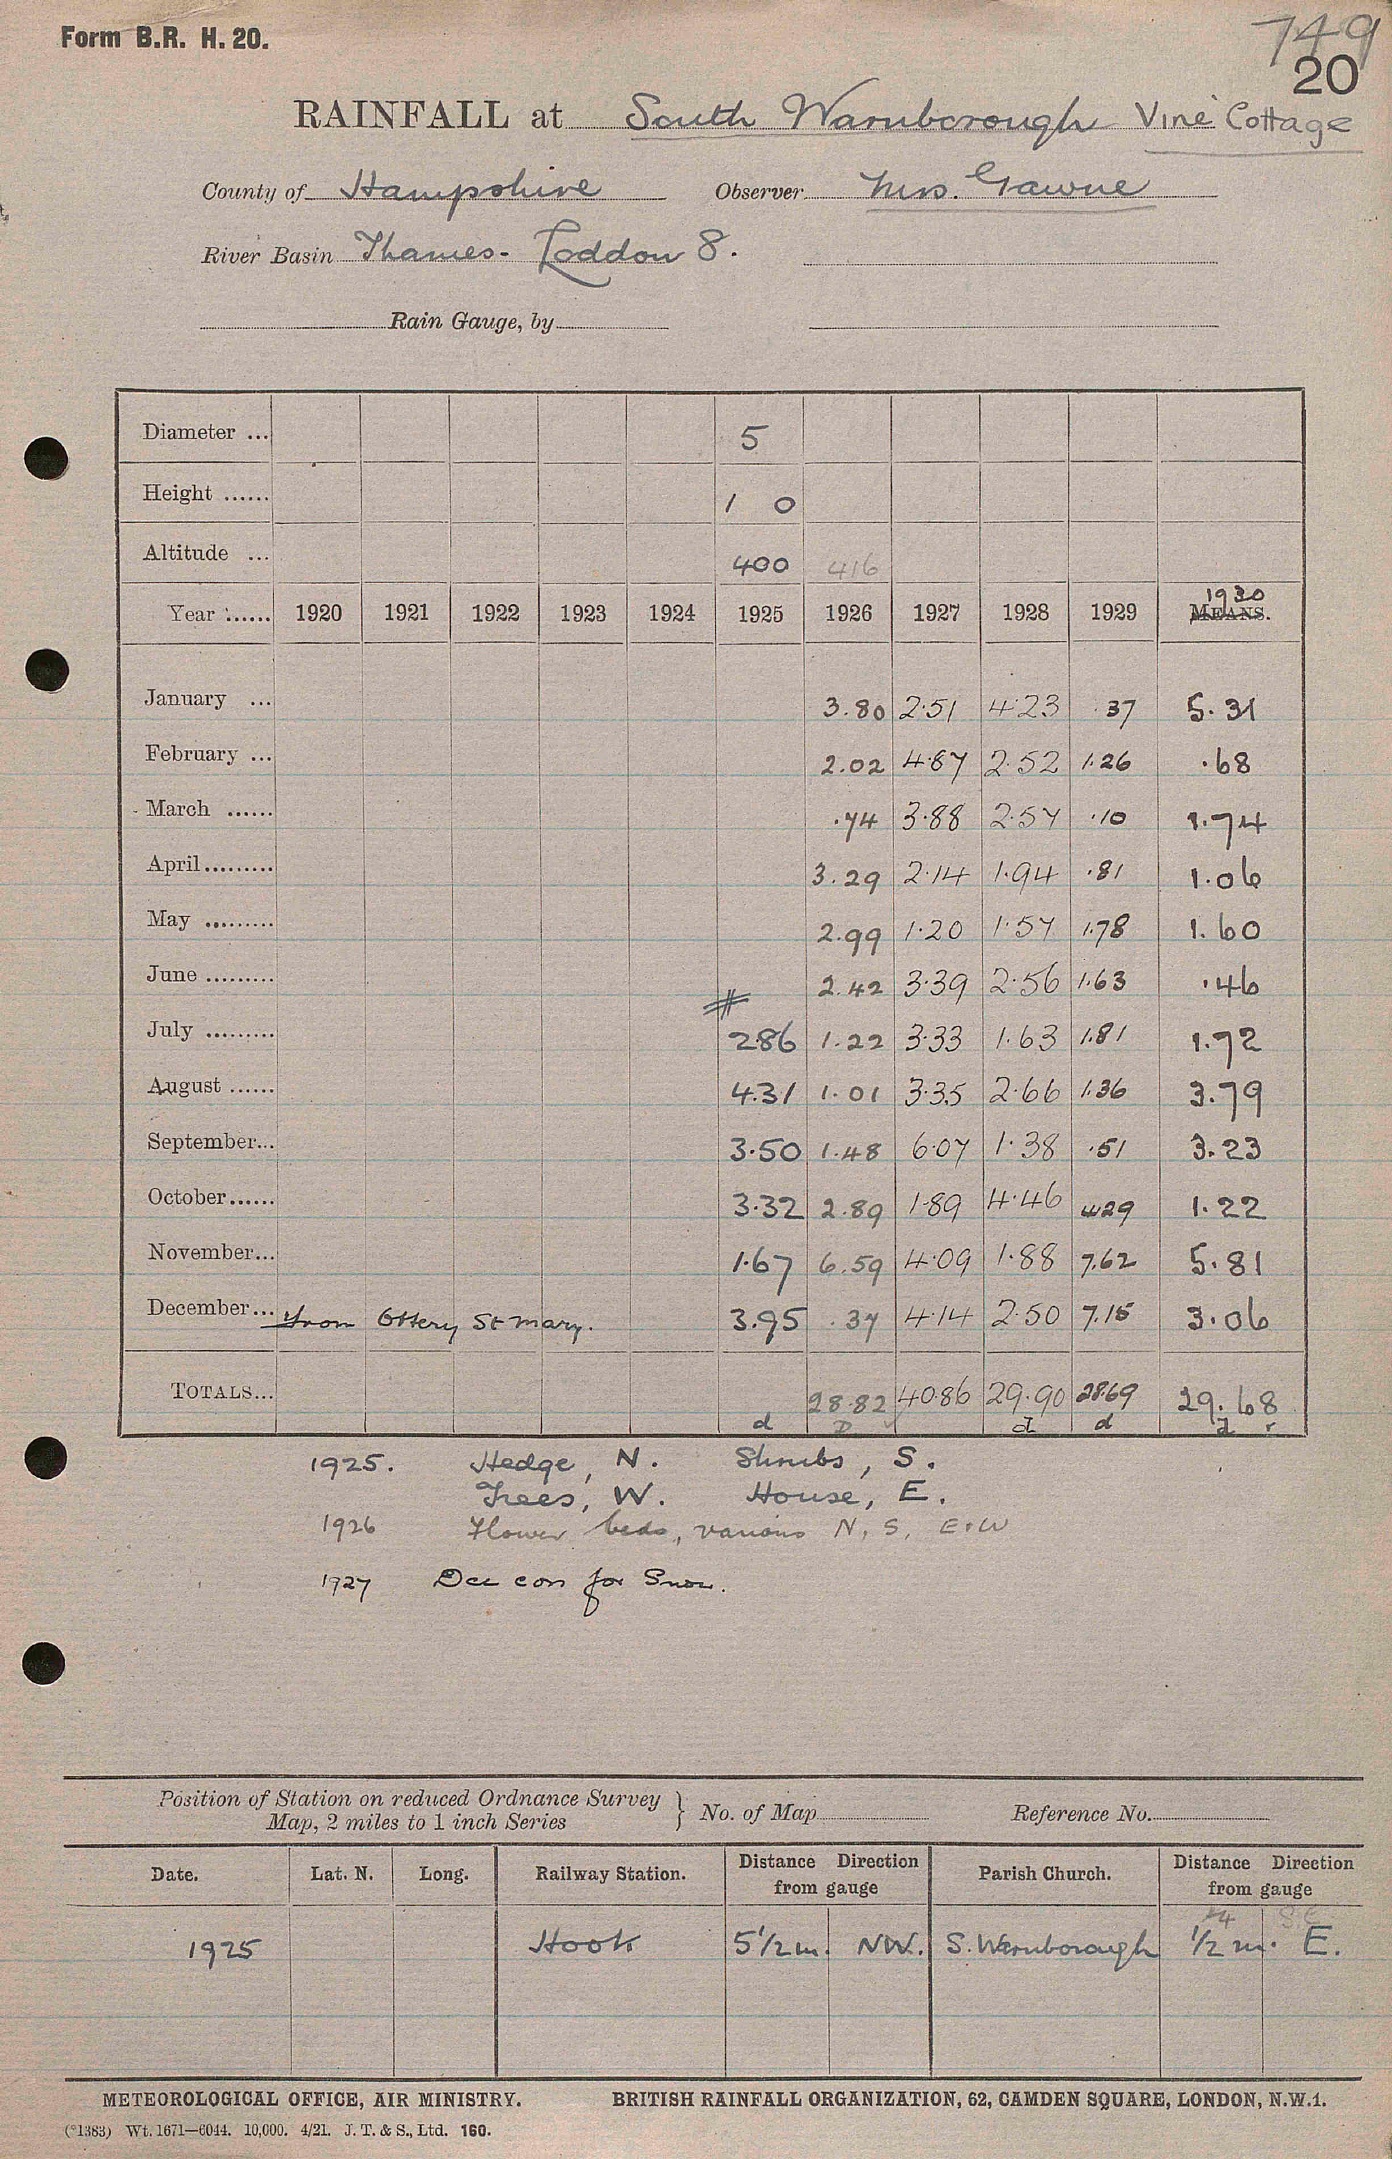 749
Form B.R. H. 20.
20
RAINFALL at South Warnborough Vine Cottage
County of Hampshire Observer Mrs. Gawne
River Basin Thames - Loddon 8.
Rain Gauge, by
Diameter ... 5
Height ...... 1 0
Altitude ... 400 416
1930
Year ...... 1920 1921 1922 1923 1924 1925 1926 1927 1928 1929 MEANS.
January ... 3.80 2.51 4.23 .37 5.31
February ... 2.02 4.87 2.52 1.26 .68
March ...... .74 3.88 2.57 .10 1.74
April......... 3.29 2.14 1.94 .81 1.06
May ......... 2.99 1.20 1.57 1.78 1.60
June ......... 2.42 3.39 2.56 1.63 .46
July ......... 2.86 1.22 3.33 1.63 1.81 1.72
August ...... 4.31 1.01 3.35 2.66 1.36 3.79
September... 3.50 1.48 6.07 1.38 .51 3.23
October...... 3.32 2.89 1.89 4.46 4.29 1.22
November... 1.67 6.59 4.09 1.88 7.62 5.81
December... From Ottery St Mary. 3.95 .37 4.14 2.50 7.15 3.06
TOTALS... 28.82 40.86 29.90 28.69 29.68
d D d d d r
1925. Hedge, N. Shrubs, S.
Trees, W. House, E.
1926 Flower beds, various N, S, E+W
1927 Dec corr for Snow.
Position of Station on reduced Ordnance Survey
Map, 2 miles to 1 inch Series } No. of Map Reference No.
Date. Lat. N. Long. Railway Station. Distance Direction from gauge Parish Church. Distance Direction from gauge
1/4 S.E.
1925 Hook 5 1/2 m. NW. S. Warnborough 1/2 m. E.
METEOROLOGICAL OFFICE, AIR MINISTRY. BRITISH RAINFALL ORGANIZATION, 62, CAMDEN SQUARE, LONDON, N.W.1.
(*1383) Wt. 1671—6044. 10,000. 4/21. J. T. & S., Ltd. 160.